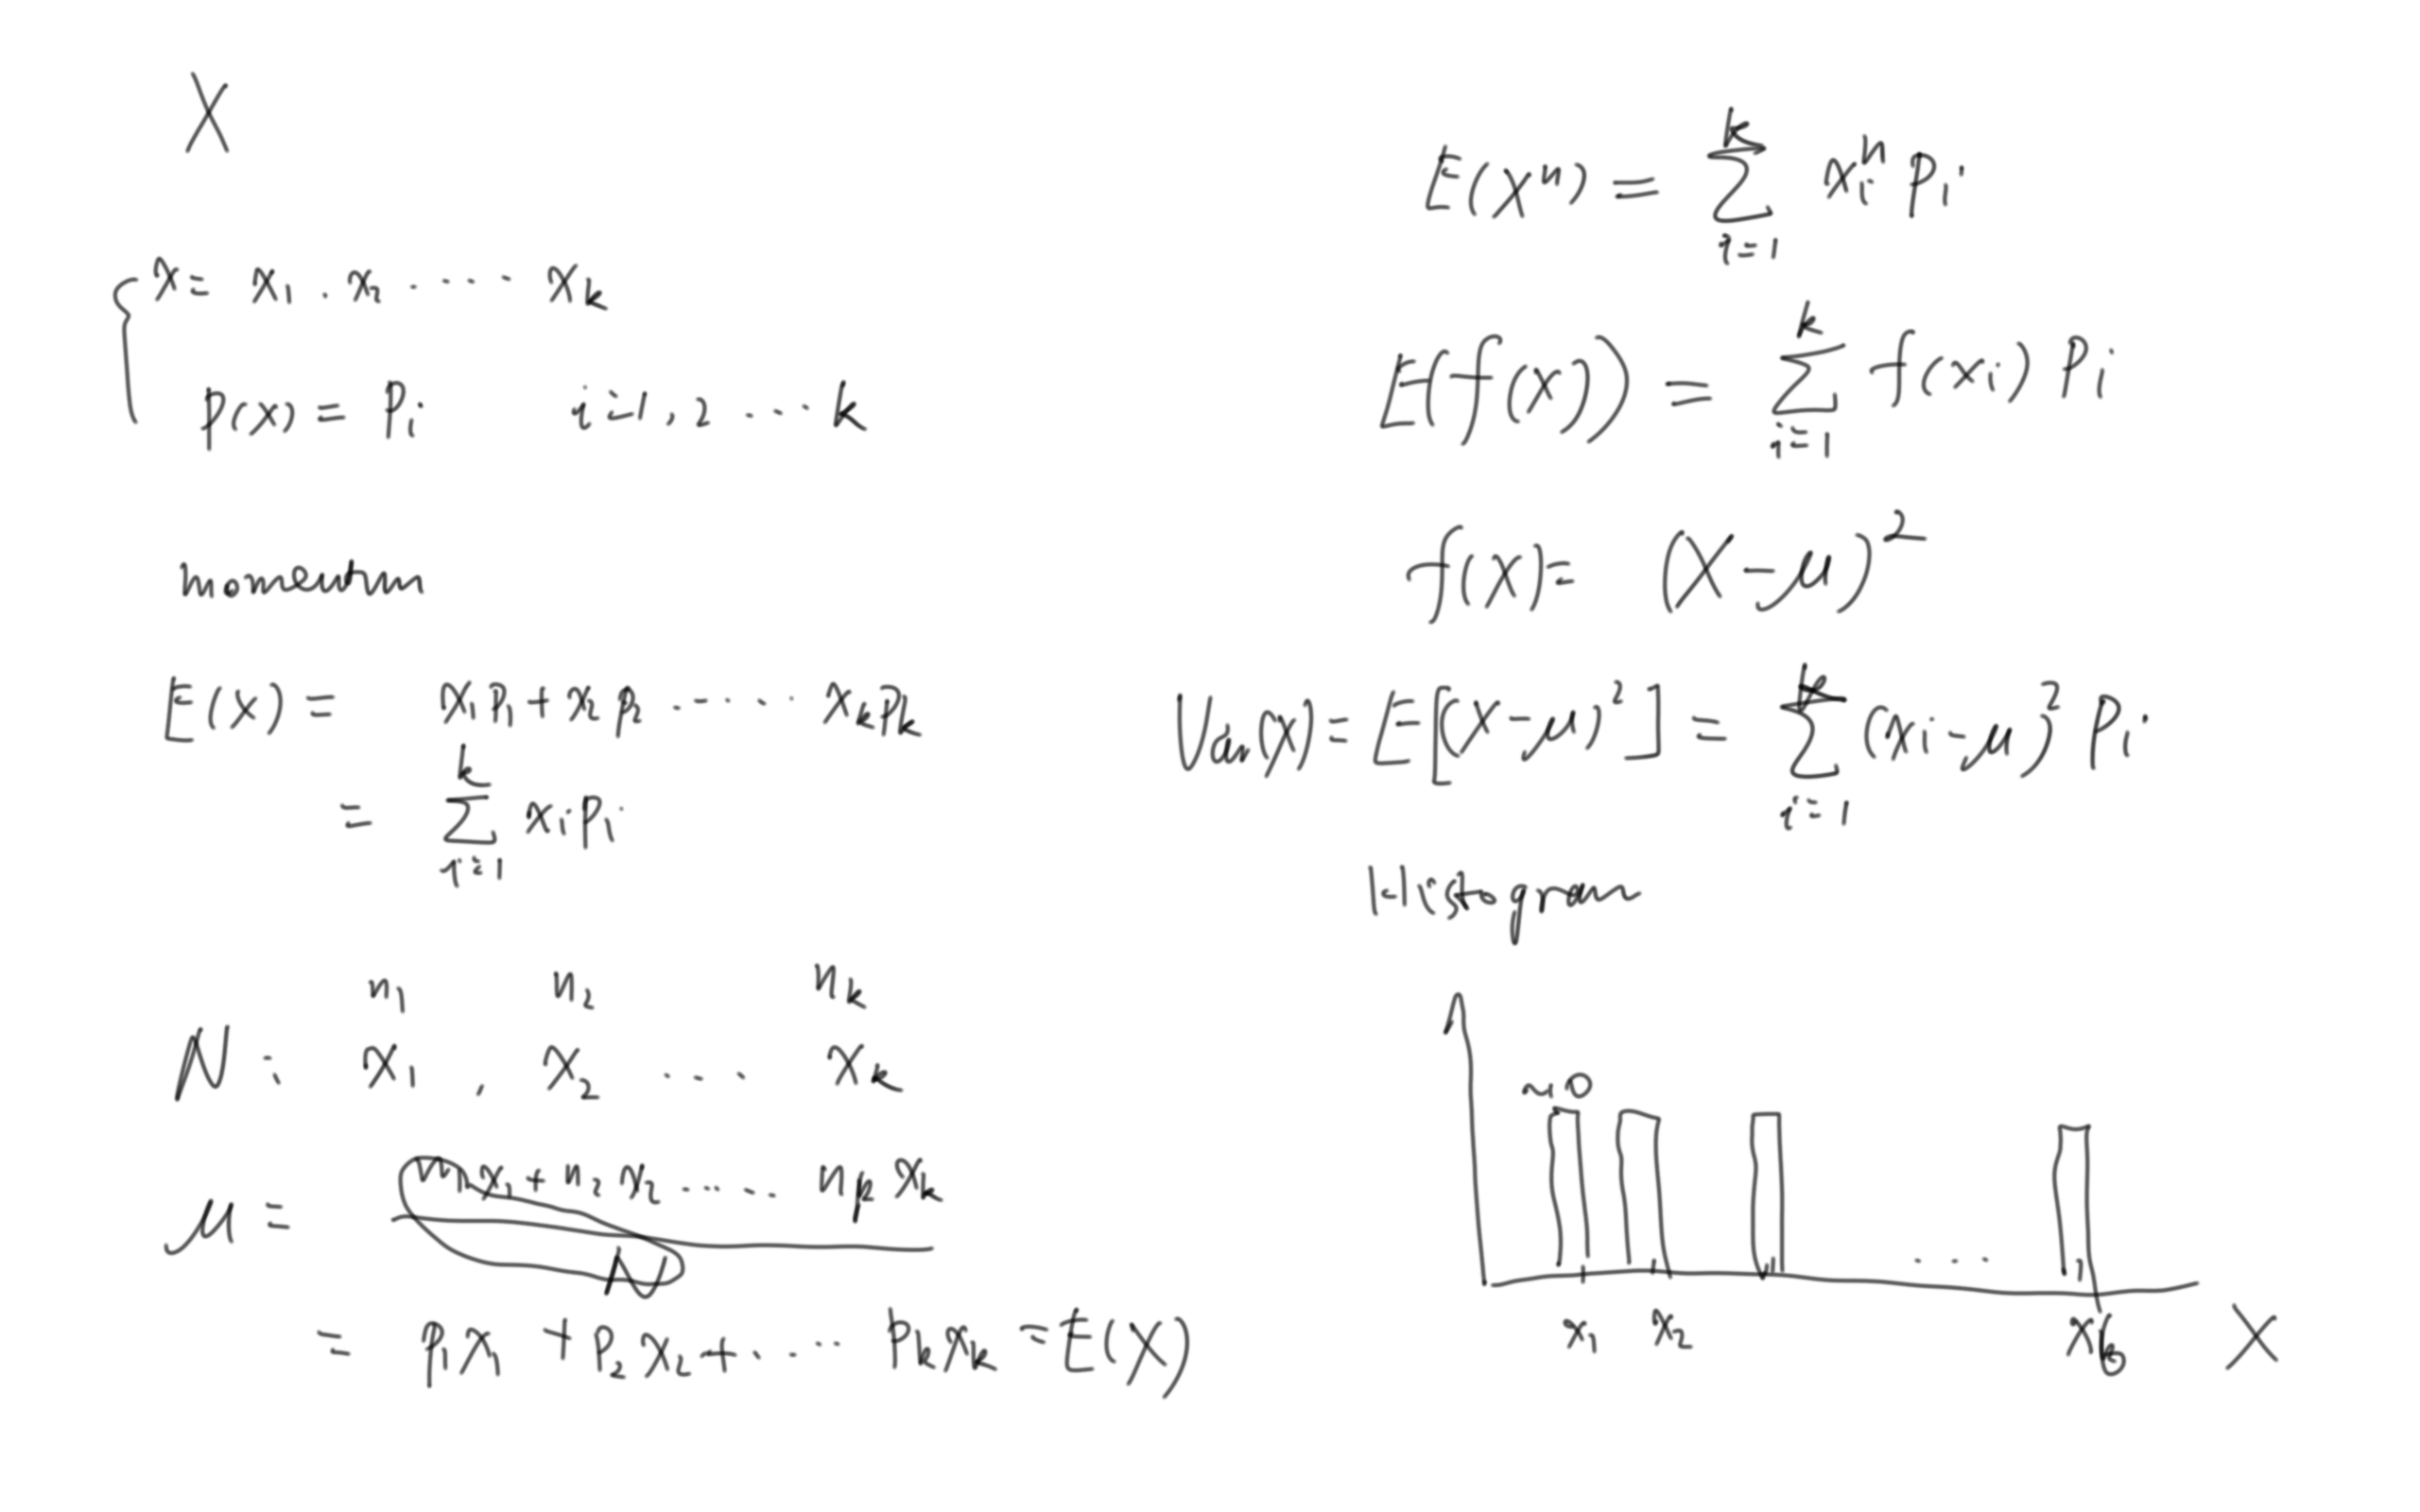 X
x = x₁, x₂ ..... x_k
P(x) = P_i    i = 1, 2 .... k
momentum
E(x) = x₁P₁ + x₂P₂ ..... x_k P_k
= Σ_{i=1}^{k} x_i P_i
n₁    n₂    n_k
N :    x₁ , x₂ ... x_k
μ = (n₁x₁ + n₂x₂ ..... n_k x_k) / N
= P₁x₁ + P₂x₂ + .... P_k x_k = E(X)
E(Xⁿ) = Σ_{i=1}^{k} x_iⁿ P_i
E(f(x)) = Σ_{i=1}^{k} f(x_i) P_i
f(X) = (X-μ)²
Var(X) = E[(X-μ)²] = Σ_{i=1}^{k} (x_i-μ)² P_i
Histogram
x₁    x₂    ...    X